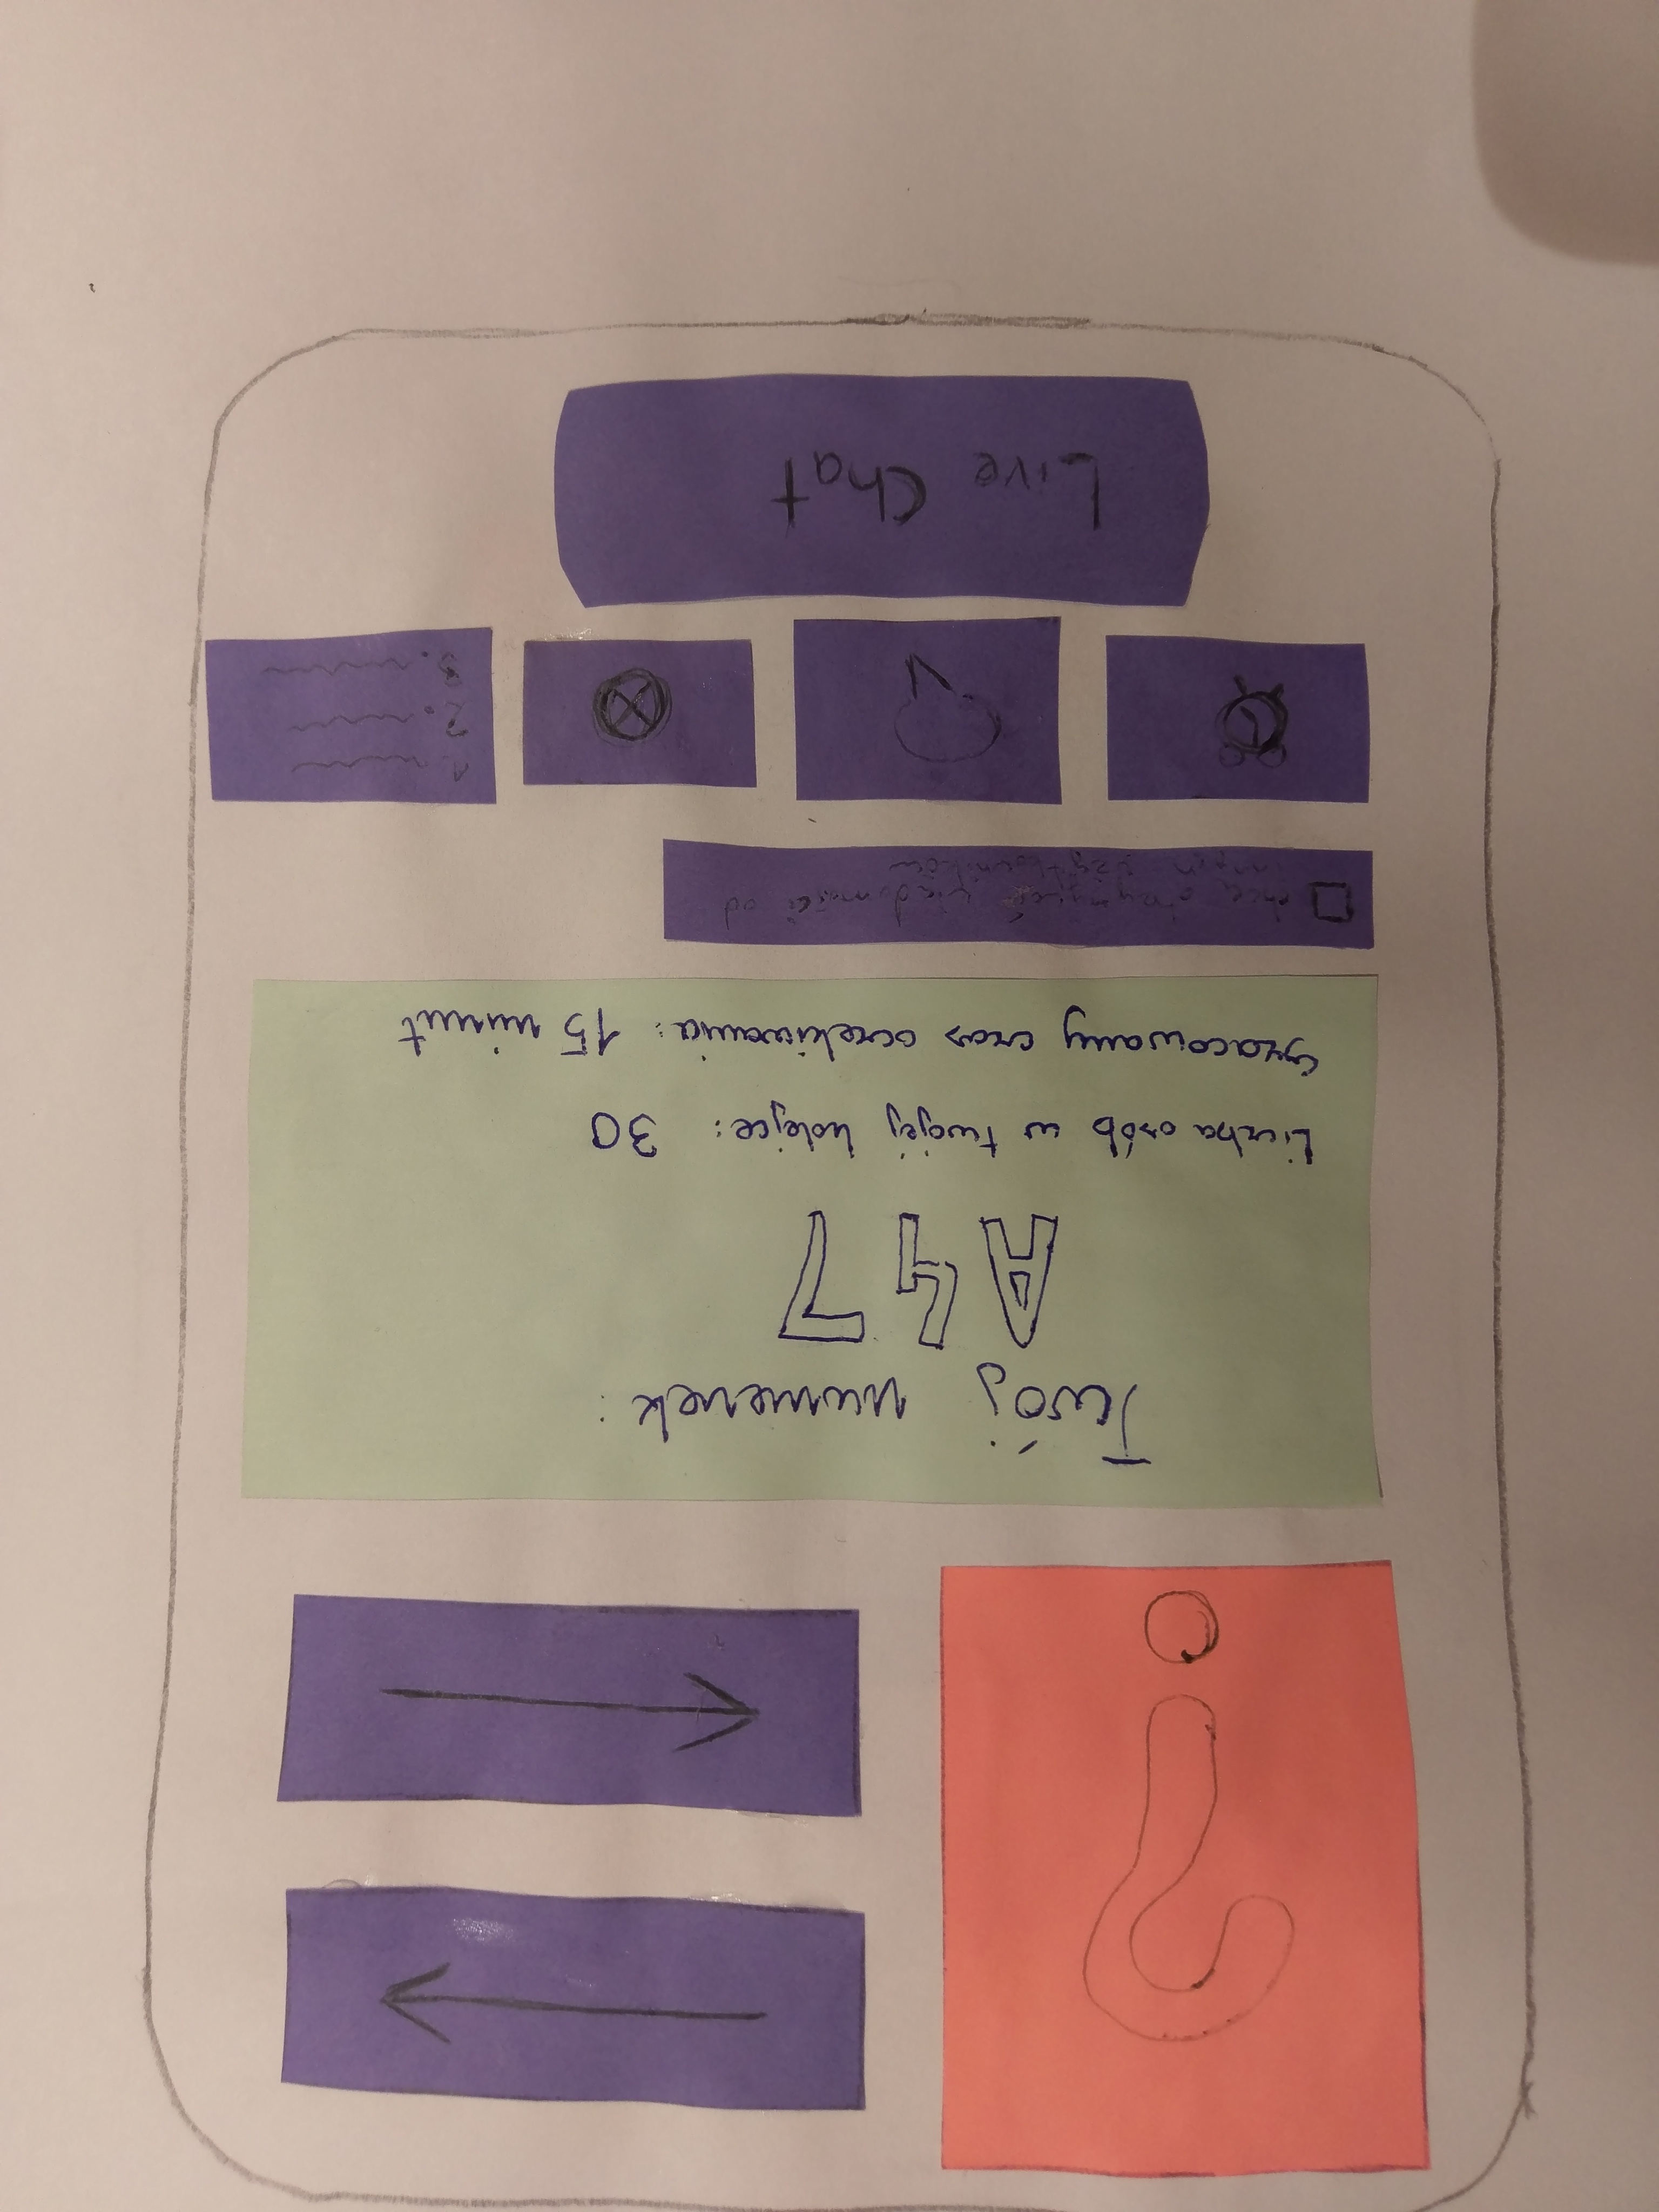 ?
Twój numerek:
A47
Liczba osób w twojej kolejce: 30
szacowany czas oczekiwania: 15 minut
chcę otrzymywać wiadomości od
innych użytkowników
1.
2.
3.
Live Chat